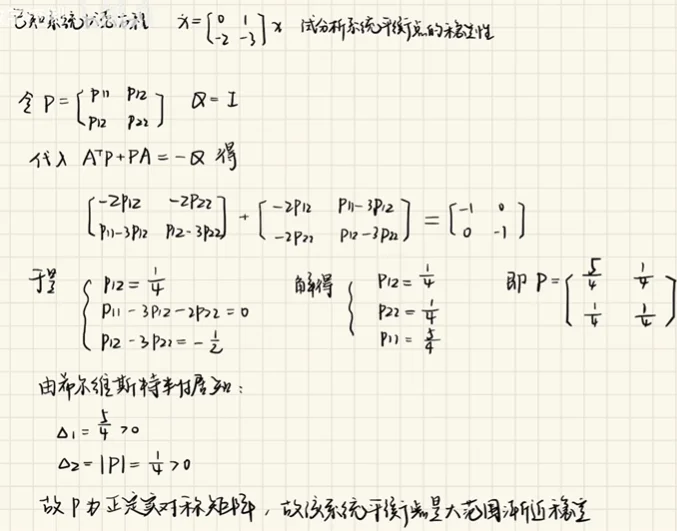 已知系统状态方程 ẋ = [0 1; -2 -3] x 试分析系统平衡点的稳定性
令 P = [P11 P12; P12 P22] Q = I
代入 AᵀP + PA = -Q 得
[-2P12 -2P22; P11-3P12 P12-3P22] + [-2P12 P11-3P12; -2P22 P12-3P22] = [-1 0; 0 -1]
于是 { P12 = 1/4 ; P11 - 3P12 - 2P22 = 0 ; P12 - 3P22 = -1/2 解得 { P12 = 1/4 ; P22 = 1/4 ; P11 = 5/4 即 P = [5/4 1/4; 1/4 1/4]
由希尔维斯特判据知:
Δ1 = 5/4 > 0
Δ2 = |P| = 1/4 > 0
故 P 为正定实对称矩阵, 故该系统平衡点是大范围渐近稳定